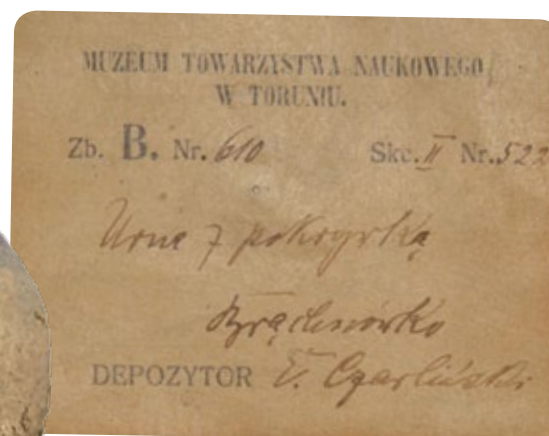 MUZEUM TOWARZYSTWA NAUKOWEGO
W TORUNIU.
Zb. B. Nr. 610 Skc. II Nr. 522
Urna z pokrywką
Brąchnówko
DEPOZYTOR E. Czarliński